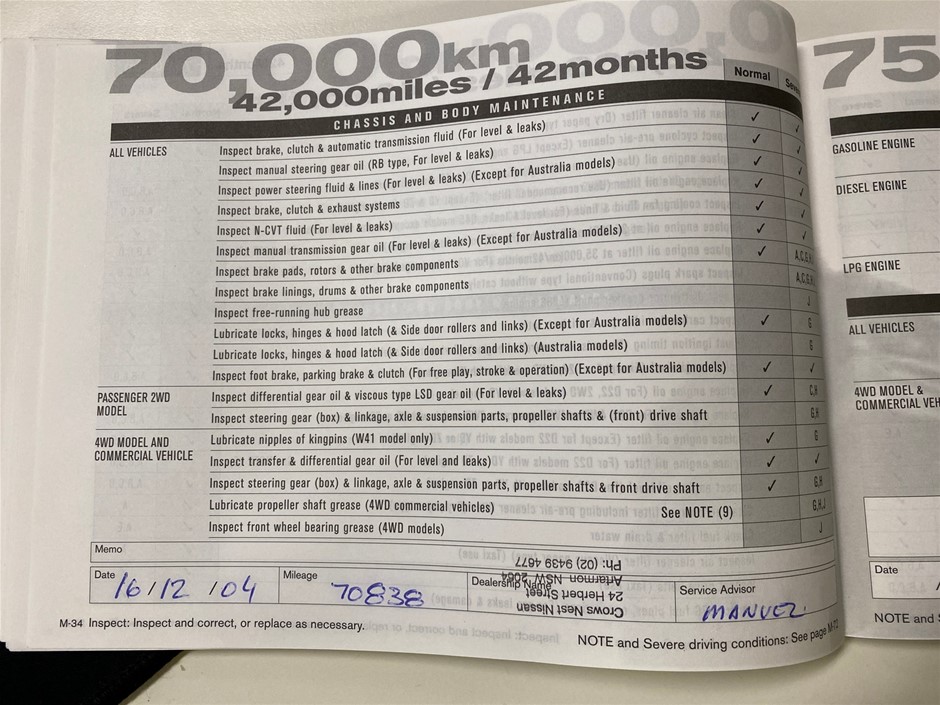 70,000km
42,000miles / 42months
Normal
CHASSIS AND BODY MAINTENANCE
ALL VEHICLES
Inspect brake, clutch & automatic transmission fluid (For level & leaks) ✓ ✓
Inspect manual steering gear oil (RB type, For level & leaks) ✓ ✓
Inspect power steering fluid & lines (For level & leaks) (Except for Australia models) ✓ ✓
Inspect brake, clutch & exhaust systems ✓ ✓
Inspect N-CVT fluid (For level & leaks) ✓ ✓
Inspect manual transmission gear oil (For level & leaks) (Except for Australia models) ✓ ✓
Inspect brake pads, rotors & other brake components ✓ A,C,G,H
Inspect brake linings, drums & other brake components A,C,G,H
Inspect free-running hub grease J
Lubricate locks, hinges & hood latch (& Side door rollers and links) (Except for Australia models) ✓ G
Lubricate locks, hinges & hood latch (& Side door rollers and links) (Australia models) G
Inspect foot brake, parking brake & clutch (For free play, stroke & operation) (Except for Australia models) ✓ ✓
PASSENGER 2WD
MODEL
Inspect differential gear oil & viscous type LSD gear oil (For level & leaks) ✓ C,H
Inspect steering gear (box) & linkage, axle & suspension parts, propeller shafts & (front) drive shaft G,H
4WD MODEL AND
COMMERCIAL VEHICLE
Lubricate nipples of kingpins (W41 model only) ✓ G
Inspect transfer & differential gear oil (For level and leaks) ✓ ✓
Inspect steering gear (box) & linkage, axle & suspension parts, propeller shafts & front drive shaft ✓ G,H
Lubricate propeller shaft grease (4WD commercial vehicles) See NOTE (9) G,H,J
Inspect front wheel bearing grease (4WD models) J
Memo
Date 16/12/04
Mileage 70838
Dealership Name
Crows Nest Nissan
24 Herbert Street
Artarmon NSW 2064
Ph: (02) 9439 4677
Service Advisor
MANUEL
M-34 Inspect: Inspect and correct, or replace as necessary.
NOTE and Severe driving conditions: See page
75
GASOLINE ENGINE
DIESEL ENGINE
LPG ENGINE
ALL VEHICLES
4WD MODEL &
COMMERCIAL VEH
Date
NOTE and